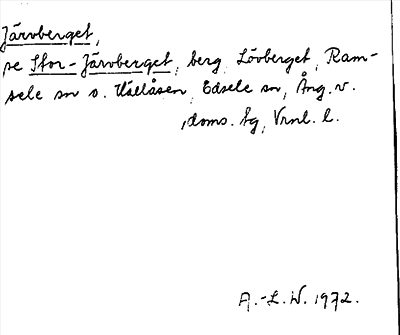 Järvberget,
se Stor-Järvberget, berg, Lövberget, Ram-
sele sn o. Hälåsen, Edsele sn, Ång. v.
,doms. hg, Vrnl. l.
A.-L. W. 1972.